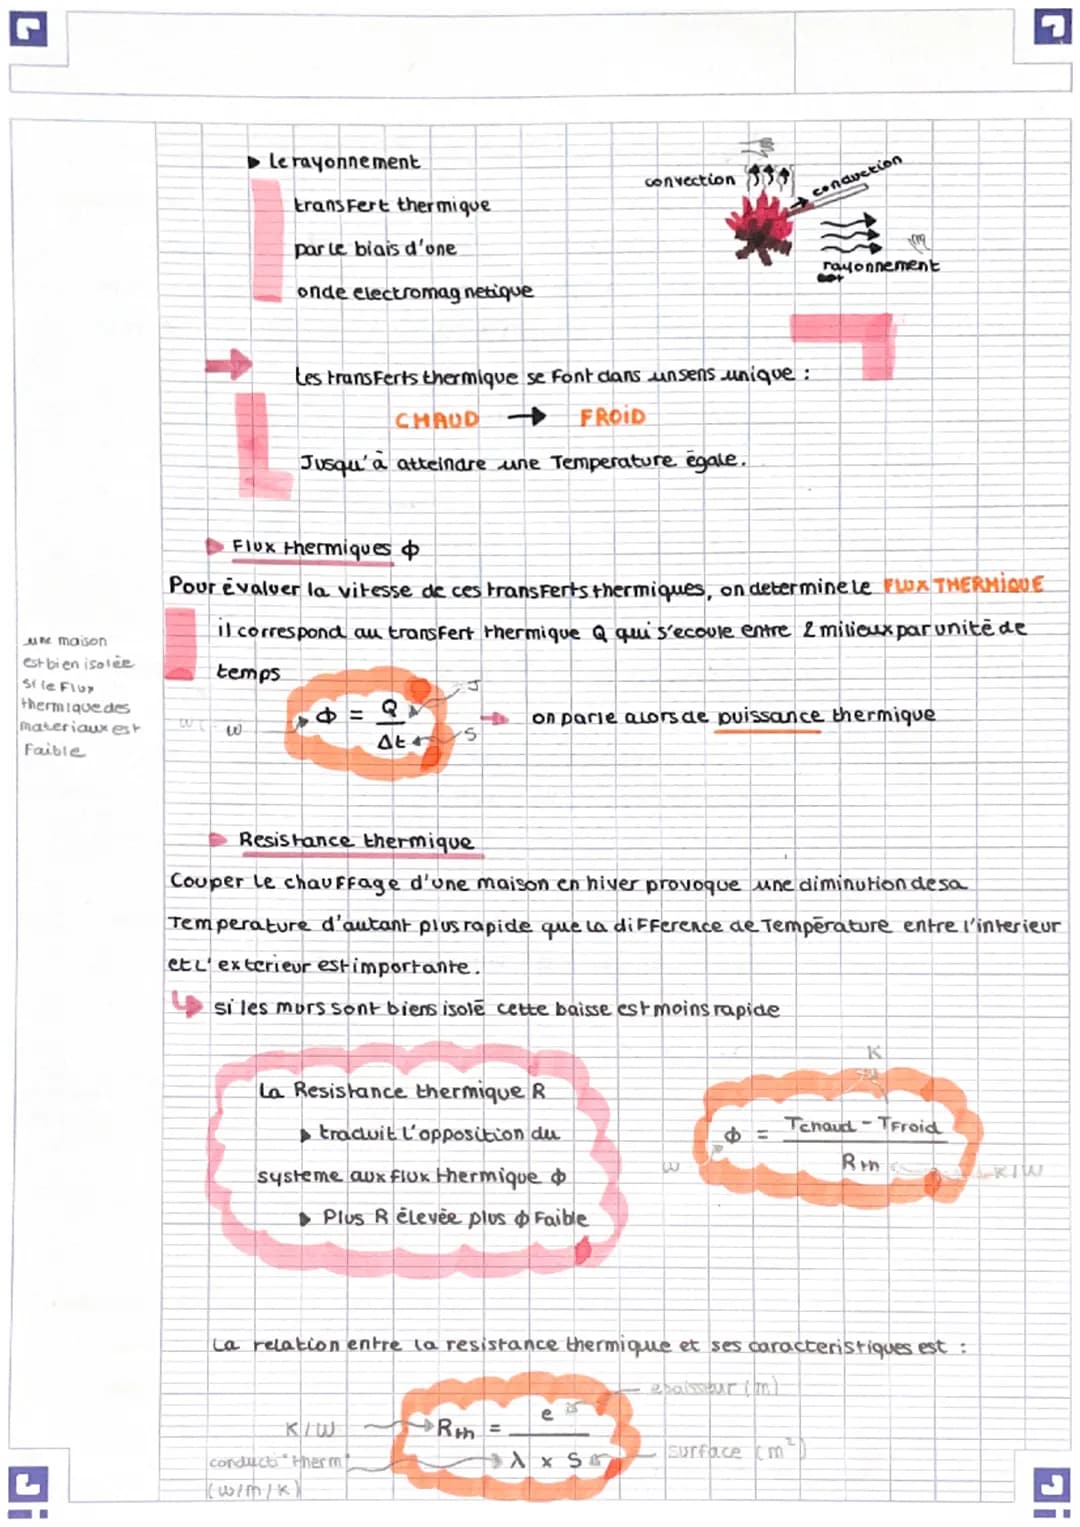 ▸ Le rayonnement
transfert thermique
par le biais d'une
onde electromagnetique
convection
conduction
rayonnement
Les transferts thermique se font dans un sens unique :
CHAUD → FROiD
Jusqu'à atteindre une Temperature égale.
Flux thermiques ϕ
Pour évaluer la vitesse de ces transferts thermiques, on determine le FLUX THERMiQUE
il correspond au transfert thermique Q qui s'ecoule entre 2 milieux par unité de
temps
une maison
est bien isolée
si le Flux
thermique des
materiaux est
Faible
W
ϕ = Q / Δt
J
S
→ on parle alors de puissance thermique
Resistance thermique
Couper le chauffage d'une maison en hiver provoque une diminution de sa
Temperature d'autant plus rapide que la difference de Température entre l'interieur
et l'exterieur est importante.
↳ si les murs sont biens isolé cette baisse est moins rapide
La Resistance thermique R
▸ traduit l'opposition du
systeme aux flux thermique ϕ
▸ Plus R élevée plus ϕ Faible
K
ϕ = Tchaud - TFroid / Rth
W
K/W
La relation entre la resistance thermique et ses caracteristiques est :
epaisseur (m)
K/W
Rth = e / λ x S
surface (m²)
conducti° therm
(W/m/K)